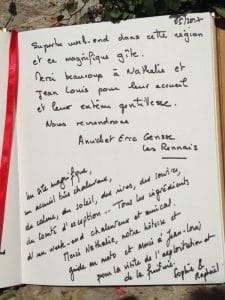 05/2017
Superbe week.end dans cette région
et ce magnifique gîte.
Merci beaucoup à Nathalie et
Jean Louis pour leur accueil
et leur extrême gentillesse.
Nous reviendrons
Anne et Eric
Les Rennais
Un site magnifique,
un accueil très chaleureux,
du calme, du soleil, des rires, des sourires,
du comté d'exception... Tous les ingrédients
d'un week-end chaleureux et amical.
Merci Nathalie, notre hôtesse et
guide en moto et merci à Jean-Louis
pour la visite de l'exploitation et
de la fruitière.
Sophie &
Raphaël